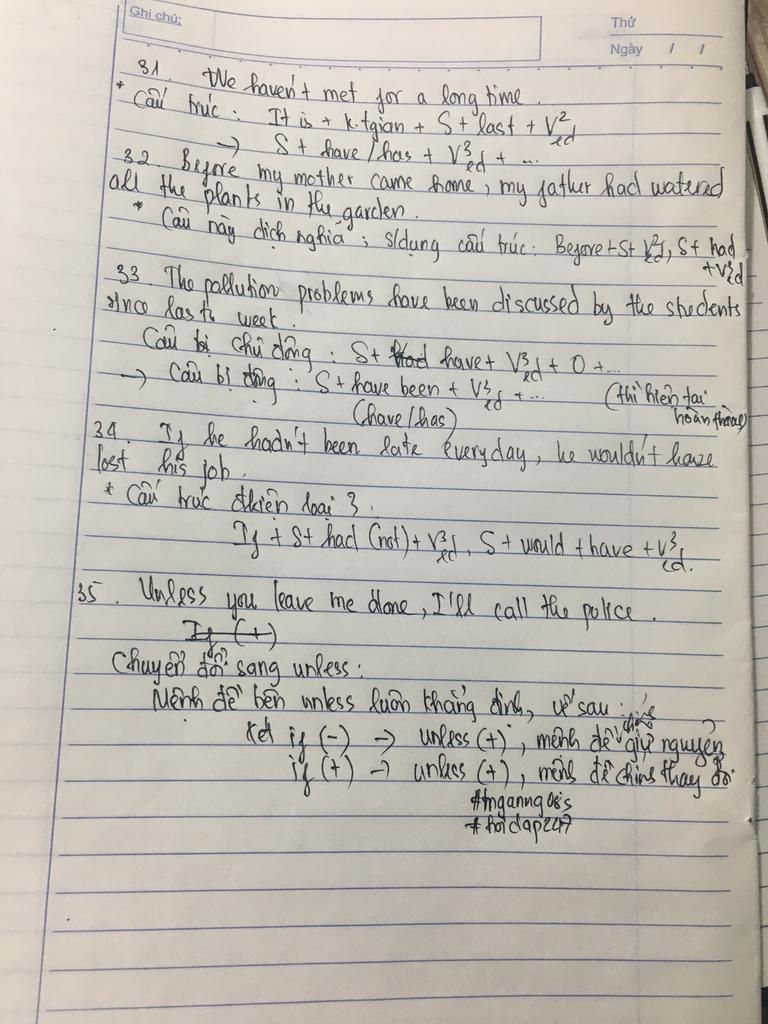 Ghi chú:
Thứ
Ngày / /
31. We haven't met for a long time.
* Cấu trúc: It is + k.tgian + S + last + V2/ed
→ S + have/has + V3/ed + ...
32. Before my mother came home, my father had watered
all the plants in the garden.
* Câu này dịch nghĩa; s/dụng cấu trúc: Before + S + V2/ed, S + had
+ V3/ed
33. The pollution problems have been discussed by the students
since last week.
Câu bị chủ động: S + had have + V3/ed + O + ...
→ Câu bị động: S + have been + V3/ed + ... (thì hiện tại
(have/has) hoàn thành)
34. If he hadn't been late everyday, he wouldn't have
lost his job.
* Cấu trúc đkiện loại 3.
If + S + had (not) + V3/ed, S + would + have + V3/ed.
35. Unless you leave me alone, I'll call the police.
If (+)
Chuyển đổi sang unless:
Mệnh đề bên unless luôn khẳng định, vế sau:
if (-) → unless (+), mệnh đề chính giữ nguyên
if (+) → unless (+), mệnh đề chính thay đổi
#hoidap247